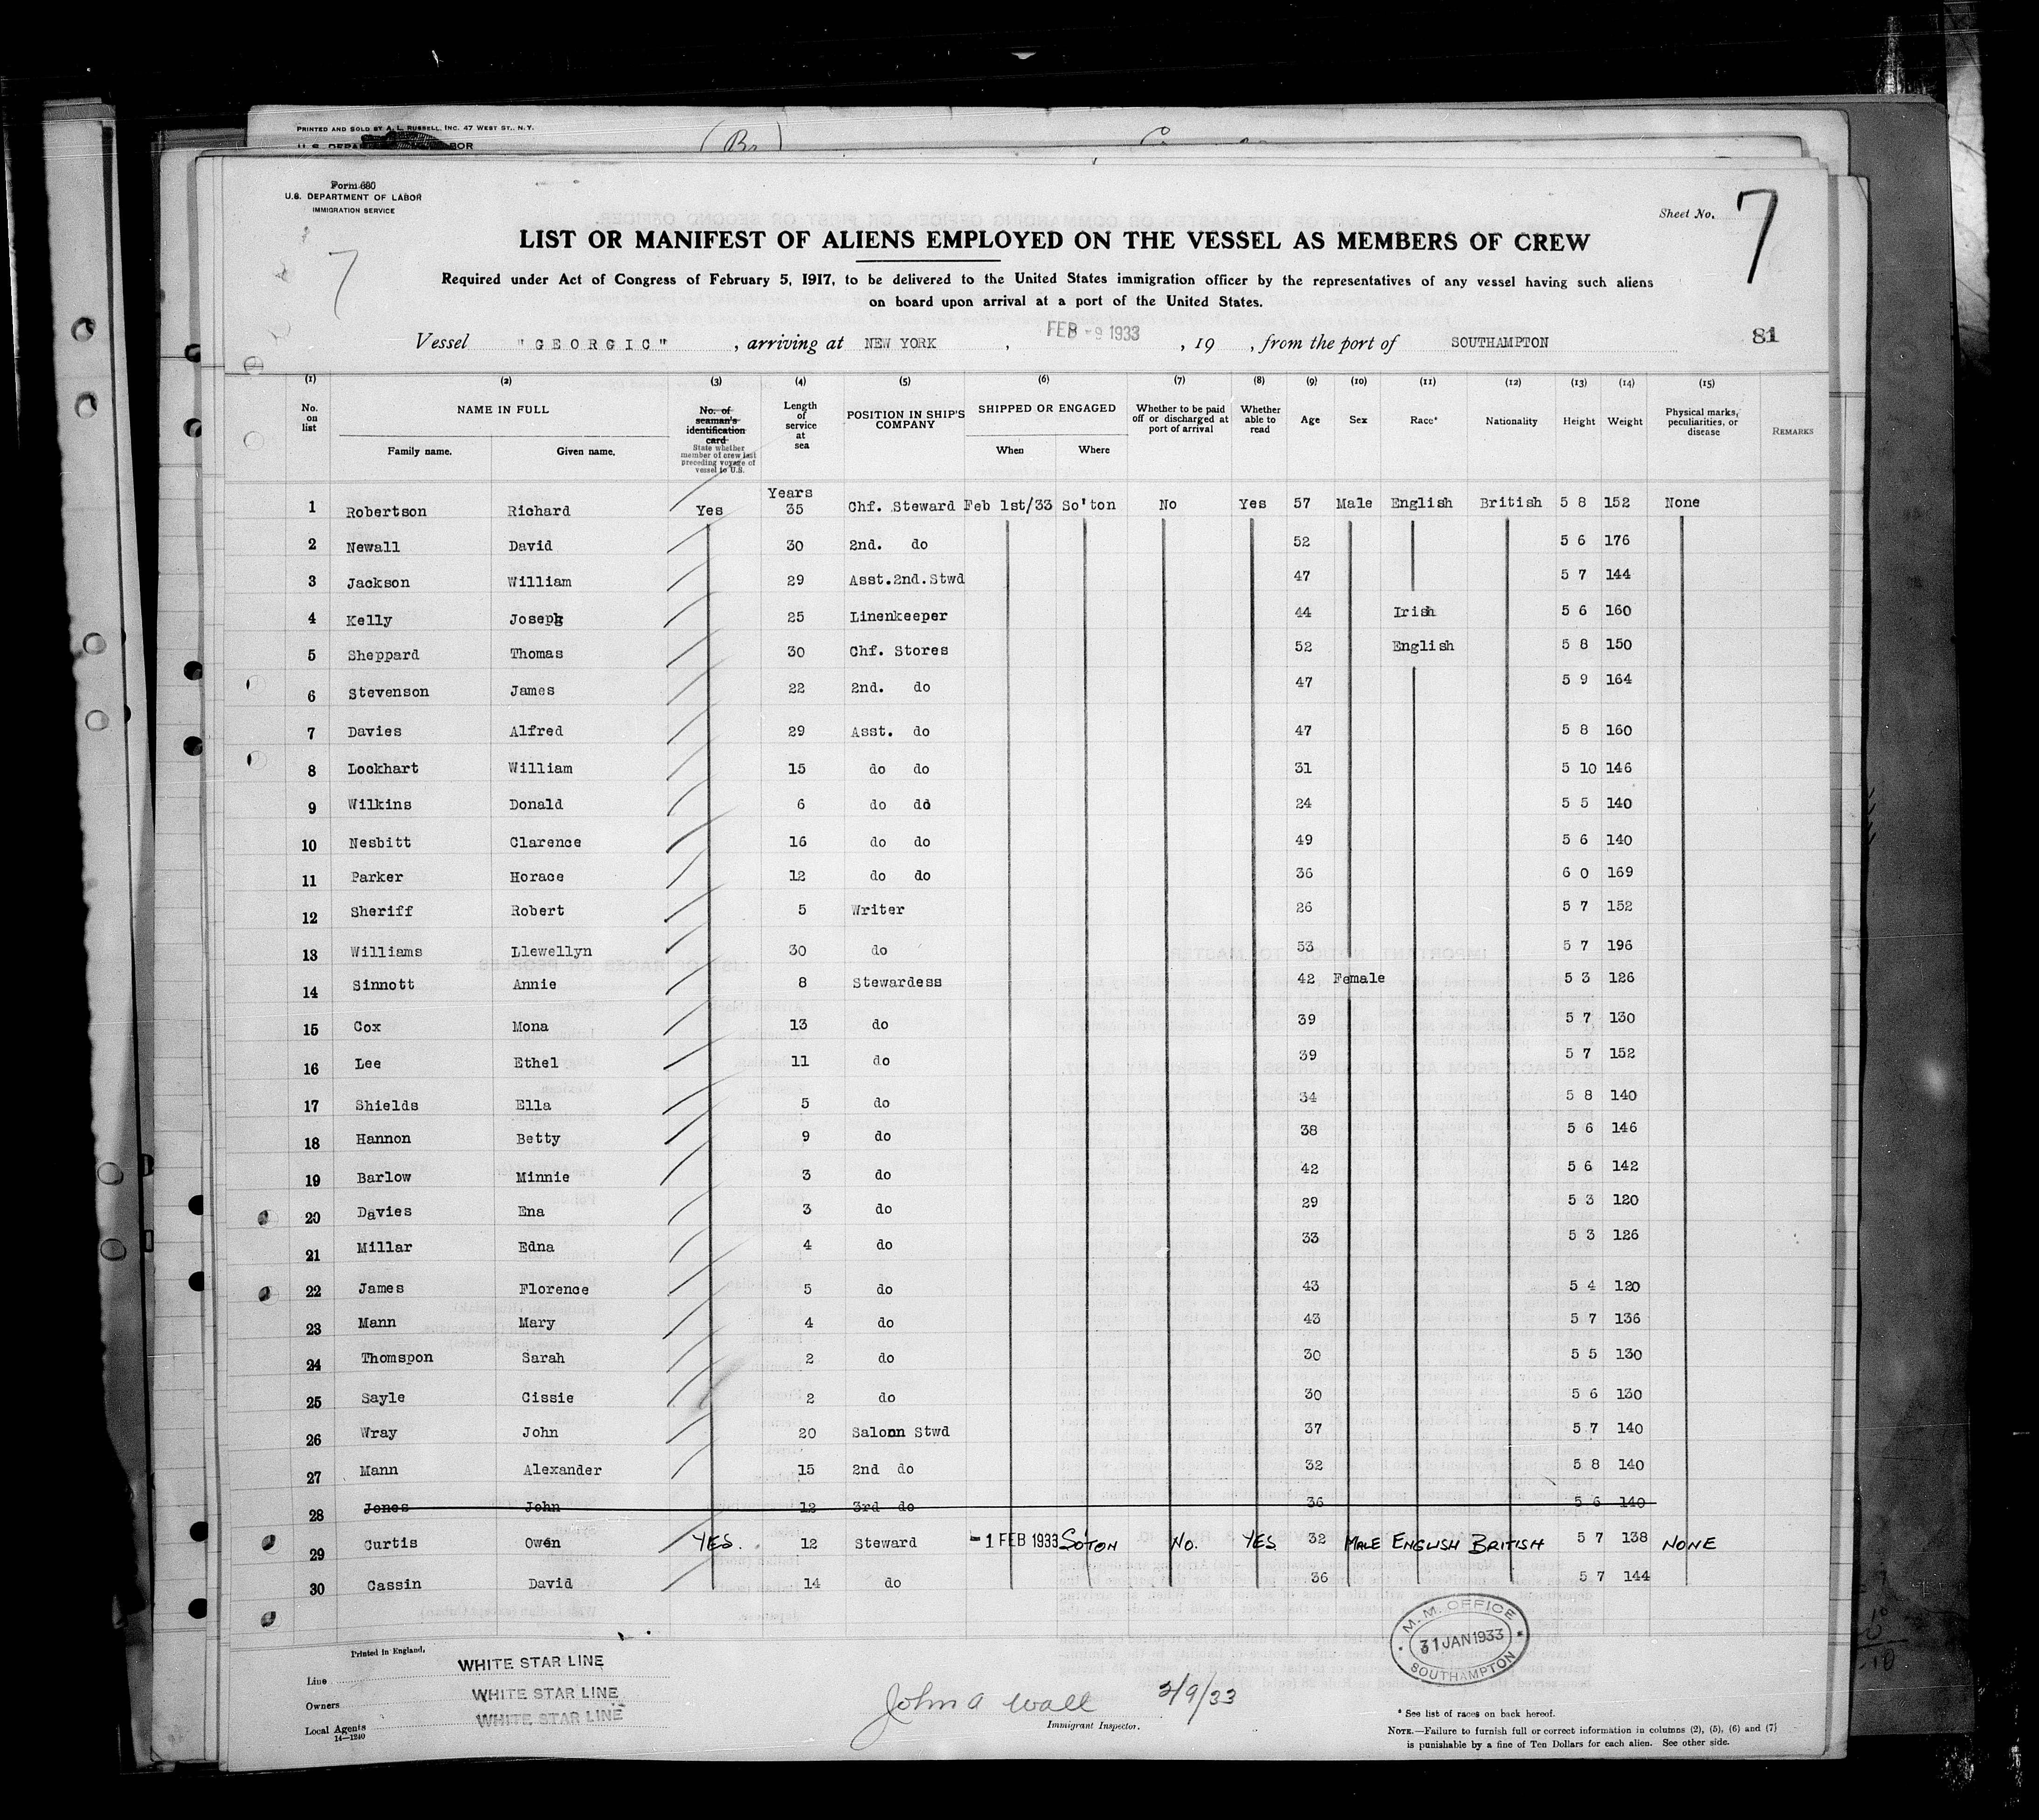 PRINTED AND SOLD BY A. L. RUSSELL, INC. 47 WEST ST., N.Y.
Form 680
U.S. DEPARTMENT OF LABOR
IMMIGRATION SERVICE
7
Sheet No. 7
LIST OR MANIFEST OF ALIENS EMPLOYED ON THE VESSEL AS MEMBERS OF CREW
Required under Act of Congress of February 5, 1917, to be delivered to the United States immigration officer by the representatives of any vessel having such aliens
on board upon arrival at a port of the United States.
Vessel "GEORGIC", arriving at NEW YORK, FEB -9 1933, 19 , from the port of SOUTHAMPTON 81
(1) (2) (3) (4) (5) (6) (7) (8) (9) (10) (11) (12) (13) (14) (15)
No. on list NAME IN FULL Family name. Given name. No. of seaman's identification card State whether member of crew last preceding voyage of vessel to U.S. Length of service at sea POSITION IN SHIP'S COMPANY SHIPPED OR ENGAGED When Where Whether to be paid off or discharged at port of arrival Whether able to read Age Sex Race* Nationality Height Weight Physical marks, peculiarities, or disease REMARKS
Years
1 Robertson Richard Yes 35 Chf. Steward Feb 1st/33 So'ton No Yes 57 Male English British 5 8 152 None
2 Newall David 30 2nd. do 52 5 6 176
3 Jackson William 29 Asst.2nd.Stwd 47 5 7 144
4 Kelly Joseph 25 Linenkeeper 44 Irish 5 6 160
5 Sheppard Thomas 30 Chf. Stores 52 English 5 8 150
6 Stevenson James 22 2nd. do 47 5 9 164
7 Davies Alfred 29 Asst. do 47 5 8 160
8 Lockhart William 15 do do 31 5 10 146
9 Wilkins Donald 6 do do 24 5 5 140
10 Nesbitt Clarence 16 do do 49 5 6 140
11 Parker Horace 12 do do 36 6 0 169
12 Sheriff Robert 5 Writer 26 5 7 152
13 Williams Llewellyn 30 do 53 5 7 196
14 Sinnott Annie 8 Stewardess 42 Female 5 3 126
15 Cox Mona 13 do 39 5 7 130
16 Lee Ethel 11 do 39 5 7 152
17 Shields Ella 5 do 34 5 8 140
18 Hannon Betty 9 do 38 5 6 146
19 Barlow Minnie 3 do 42 5 6 142
20 Davies Ena 3 do 29 5 3 120
21 Millar Edna 4 do 33 5 3 126
22 James Florence 5 do 43 5 4 120
23 Mann Mary 4 do 43 5 7 136
24 Thomspon Sarah 2 do 30 5 5 130
25 Sayle Cissie 2 do 30 5 6 130
26 Wray John 20 Saloon Stwd 37 5 7 140
27 Mann Alexander 15 2nd do 32 5 8 140
28 Jones John 12 3rd do 36 5 6 140
29 Curtis Owen YES. 12 Steward -1 FEB 1933 SO'TON No. YES 32 MALE ENGLISH BRITISH 5 7 138 NONE
30 Cassin David 14 do 36 5 7 144
M. M. OFFICE
31 JAN 1933
SOUTHAMPTON
Printed in England.
Line WHITE STAR LINE
Owners WHITE STAR LINE
Local Agents WHITE STAR LINE
14—1240
John A Wall 2/9/33
Immigrant Inspector.
* See list of races on back hereof.
NOTE.—Failure to furnish full or correct information in columns (2), (5), (6) and (7)
is punishable by a fine of Ten Dollars for each alien. See other side.